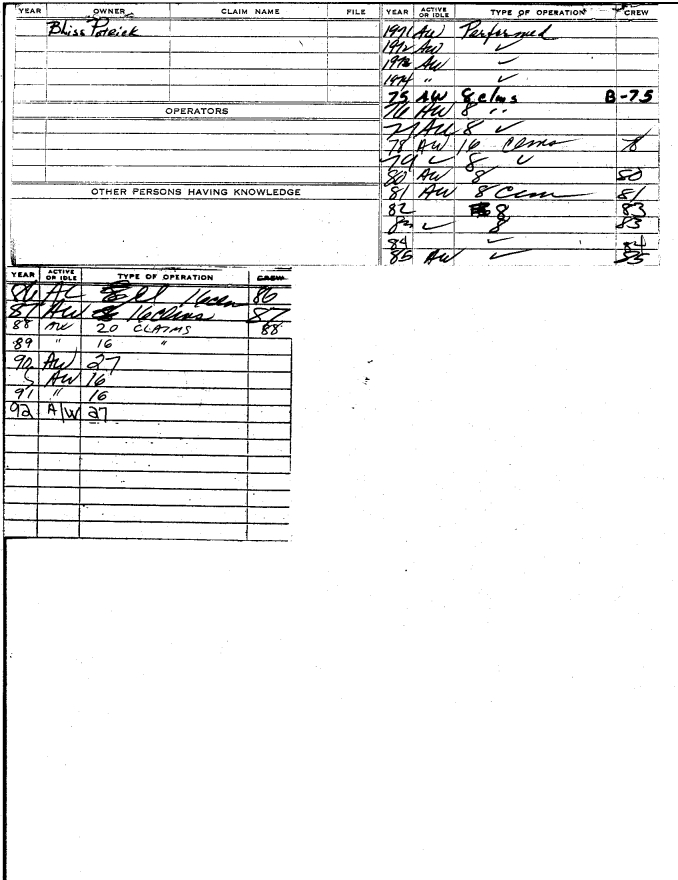 YEAR OWNER CLAIM NAME FILE
Bliss Patrick
OPERATORS
OTHER PERSONS HAVING KNOWLEDGE
YEAR ACTIVE OR IDLE TYPE OF OPERATION CREW
1971 AW Performed
1972 AW ✓
1973 AW ✓
1974 " ✓
75 AW 8 clms B-75
76 AW 8 "
77 AW 8 ✓
78 AW 16
79 ✓ 8 ✓
80 AW 8 80
81 AW 8 81
82 8 83
✓ 8 83
84 ✓ 84
85 AW ✓ 85
YEAR ACTIVE OR IDLE TYPE OF OPERATION CREW
86 86
87 AW 16 clms 87
88 AW 20 CLAIMS 88
89 " 16 "
90 AW 27
AW 16
91 " 16
92 A/W 27